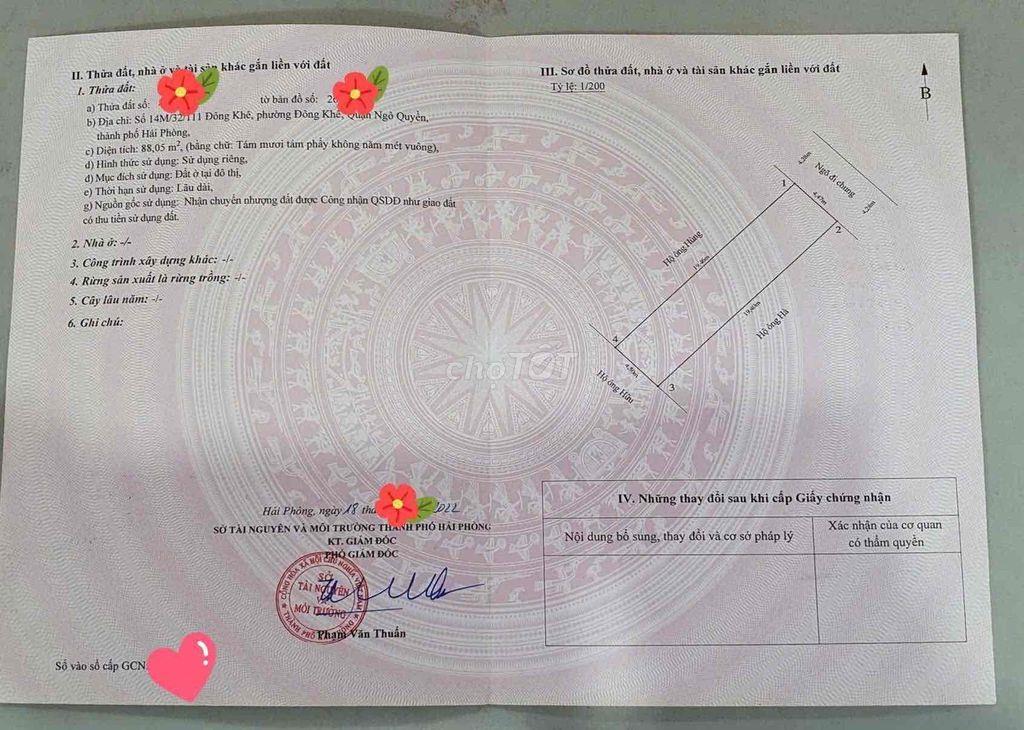 II. Thửa đất, nhà ở và tài sản khác gắn liền với đất
1. Thửa đất:
a) Thửa đất số: tờ bản đồ số: 2
b) Địa chỉ: Số 14M/32/111 Đông Khê, phường Đông Khê, Quận Ngô Quyền,
thành phố Hải Phòng,
c) Diện tích: 88,05 m², (bằng chữ: Tám mươi tám phẩy không năm mét vuông),
d) Hình thức sử dụng: Sử dụng riêng,
đ) Mục đích sử dụng: Đất ở tại đô thị,
e) Thời hạn sử dụng: Lâu dài,
g) Nguồn gốc sử dụng: Nhận chuyển nhượng đất được Công nhận QSDĐ như giao đất
có thu tiền sử dụng đất.
2. Nhà ở: -/-
3. Công trình xây dựng khác: -/-
4. Rừng sản xuất là rừng trồng: -/-
5. Cây lâu năm: -/-
6. Ghi chú:
Hải Phòng, ngày 18 2022
SỞ TÀI NGUYÊN VÀ MÔI TRƯỜNG THÀNH PHỐ HẢI PHÒNG
KT. GIÁM ĐỐC
PHÓ GIÁM ĐỐC
CỘNG HÒA XÃ HỘI CHỦ NGHĨA VIỆT NAM
SỞ
TÀI NGUYÊN
VÀ
MÔI TRƯỜNG
THÀNH PHỐ HẢI PHÒNG
Phạm Văn Thuấn
Số vào sổ cấp GCN
III. Sơ đồ thửa đất, nhà ở và tài sản khác gắn liền với đất
Tỷ lệ: 1/200
B
4,20m
Ngõ đi chung
4,24m
1
4,47m
2
Hộ ông Hùng
19,46m
19,40m
Hộ ông Hà
4
4,59m
3
Hộ ông Hữu
chợTỐT
IV. Những thay đổi sau khi cấp Giấy chứng nhận
Nội dung bổ sung, thay đổi và cơ sở pháp lý
Xác nhận của cơ quan
có thẩm quyền